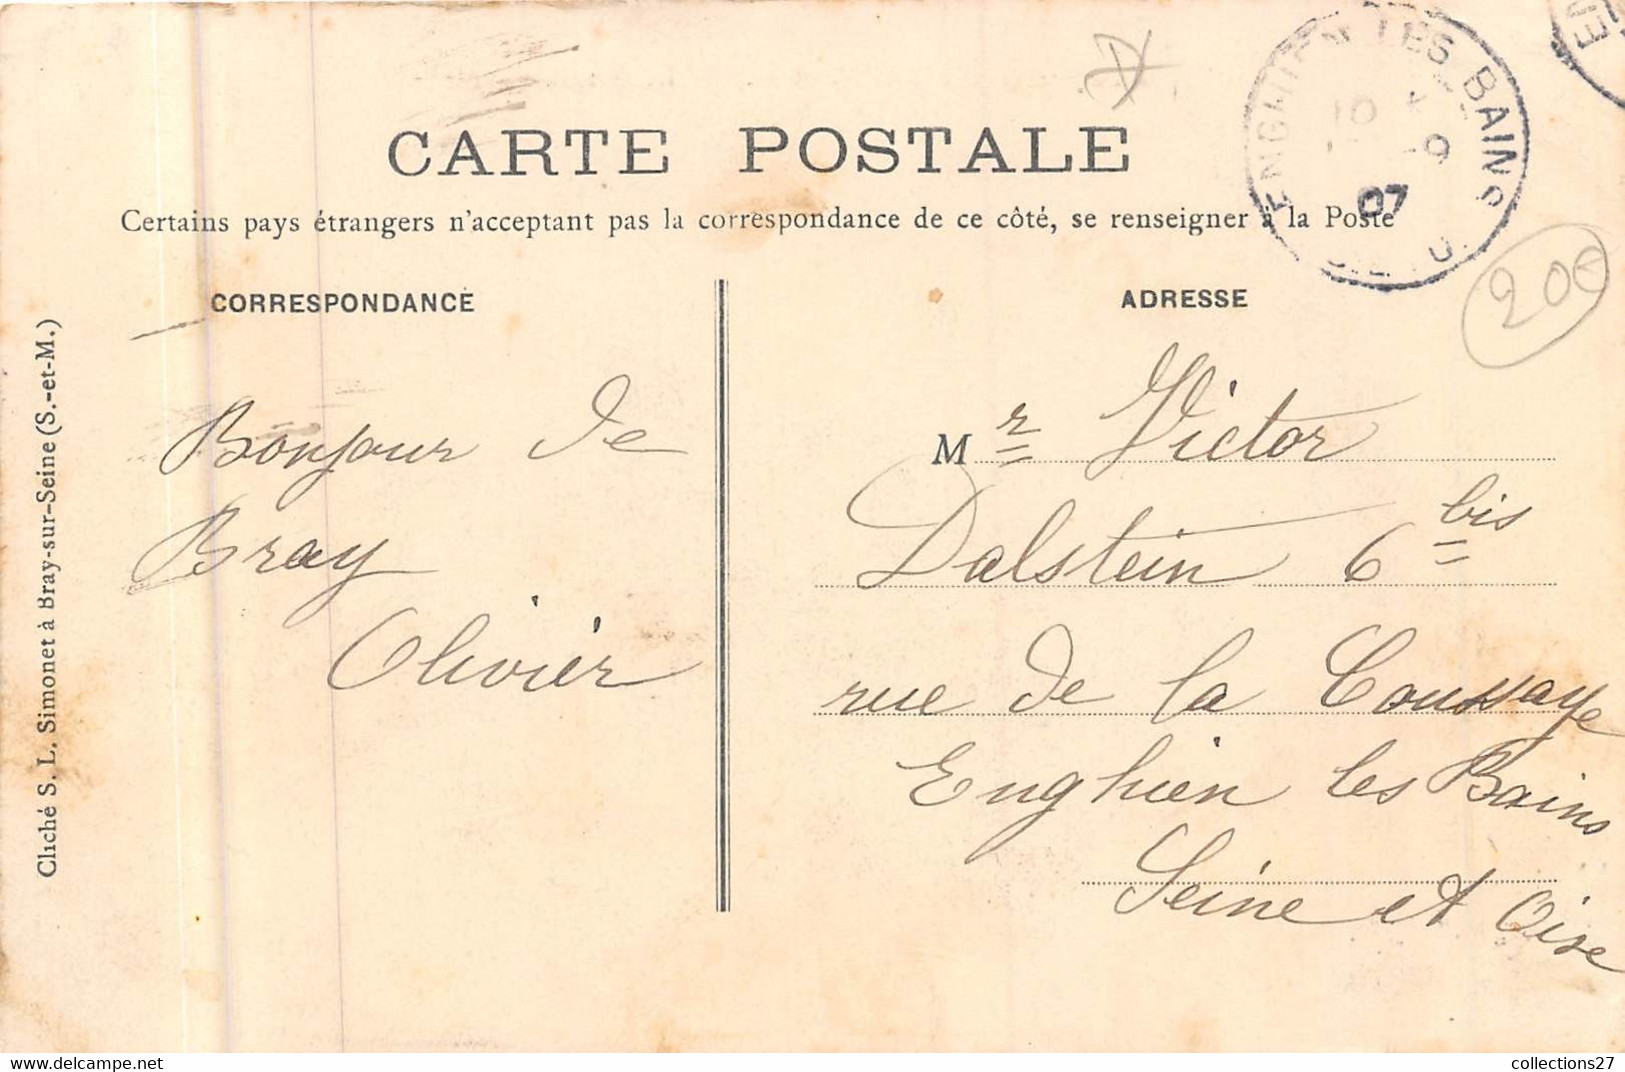 CARTE POSTALE
Certains pays étrangers n'acceptant pas la correspondance de ce côté, se renseigner à la Poste
ENGHIEN LES BAINS
10
9
07
200
CORRESPONDANCE
Bonjour de
Bray
Olivier
ADRESSE
M r Victor
Dalstein 6 bis
rue de la Coussaye
Enghien les Bains
Seine et Oise
Cliché S. L. Simonet à Bray-sur-Seine (S.-et-M.)
www.delcampe.net
collections27